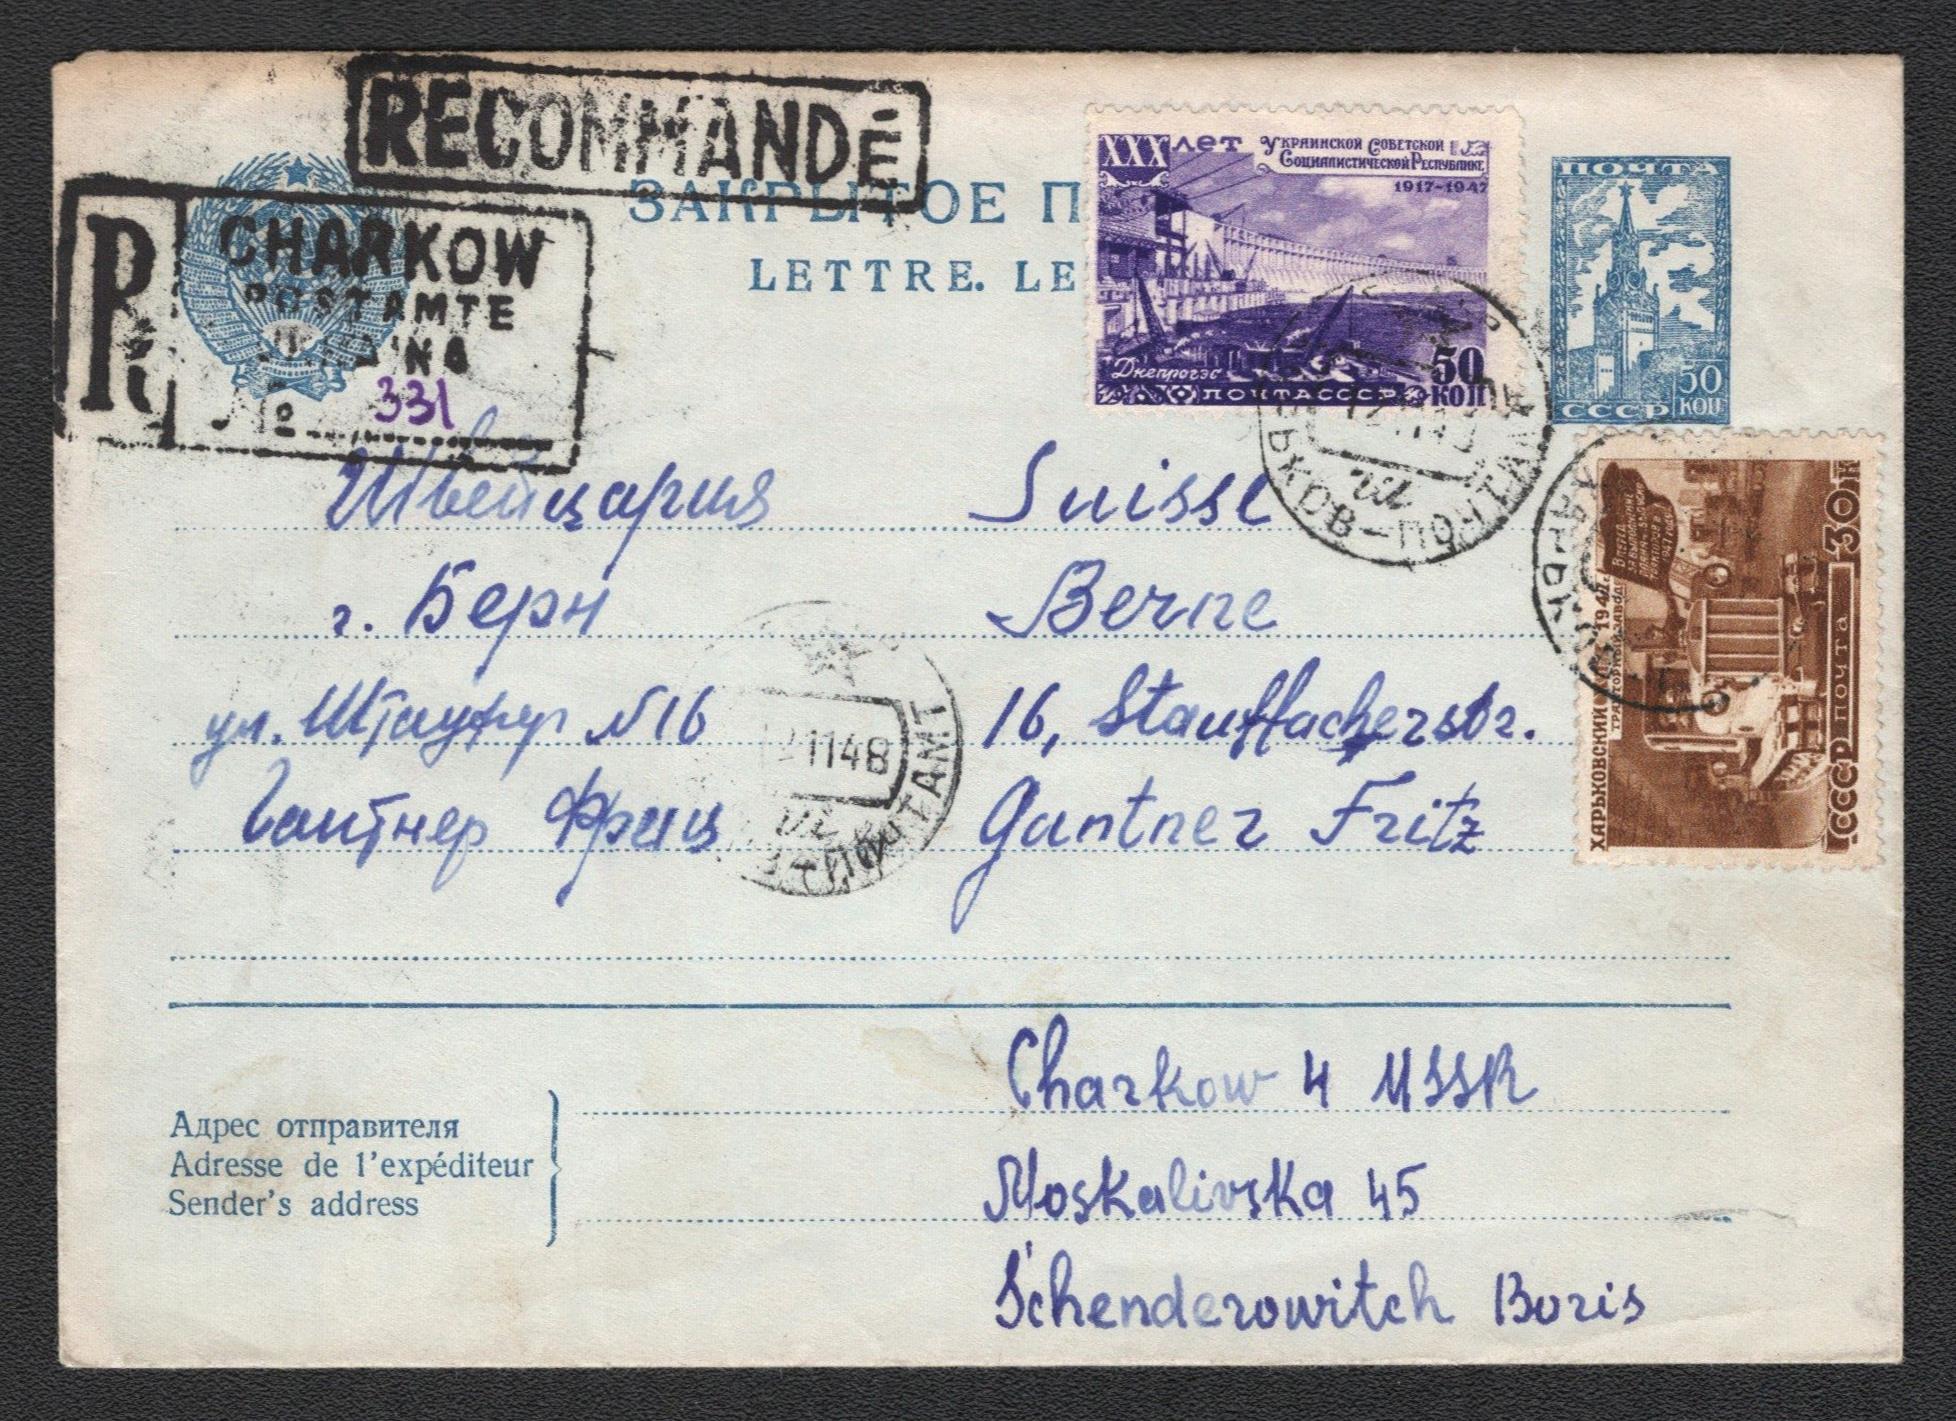 RECOMMANDÉ
R
CHARKOW
POSTAMTE
№ 331
ЗАКРЫТОЕ П
LETTRE. LE
XXX ЛЕТ УКРАИНСКОЙ СОВЕТСКОЙ
СОЦИАЛИСТИЧЕСКОЙ РЕСПУБЛИКЕ
1917-1947
Днепрогэс
50
ПОЧТА СССР КОП
ПОЧТА
50
СССР КОП
ХАРЬКОВ-ПОЧТАМТ
ХАРЬКОВСКИЙ 1947г.
ТРАКТОРНЫЙ ЗАВОД
СССР ПОЧТА 30К
Швейцария Suisse
г. Берн Berne
ул. Штауфер №16 16, Stauffacherstr.
Гантнер Фриц Gantner Fritz
12 11 48
ПОЧТАМТ
Charkow 4 USSR
Адрес отправителя
Adresse de l'expéditeur
Sender's address
Moskalivska 45
Schenderowitch Boris